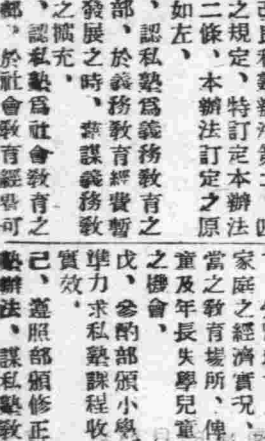 之規定、特訂定本辦法
二條、本辦法訂定之原
如左、
、認私塾爲義務敎育之
部、於義務敎育經費暫
發展之時、藉謀義務敎
之擴充、
、認私塾爲社會敎育之
部、於社會敎育經費可
家庭之經濟實况、
當之敎育塲所、俾
童及年長失學兒童
之機會、
戊、參酌部頒小學
準力求私塾課程收
實效、
己、遵照部頒修正
塾辦法、謀私塾敎